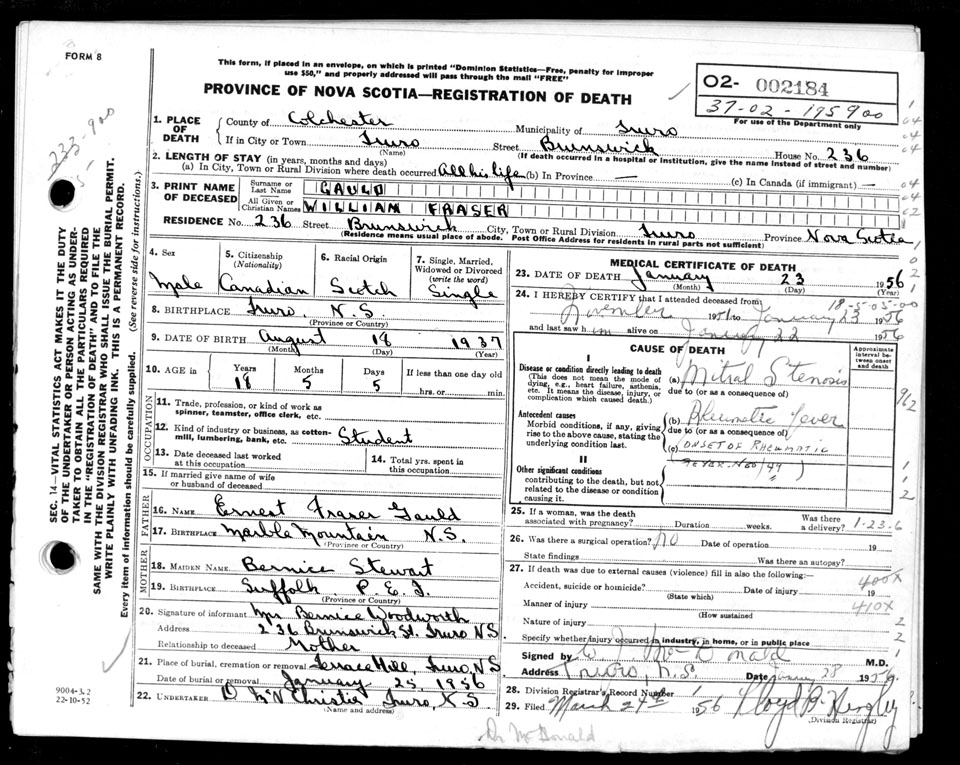 FORM 8
This form, if placed in an envelope, on which is printed "Dominion Statistics—Free, penalty for improper
use $50," and properly addressed will pass through the mail "FREE"
PROVINCE OF NOVA SCOTIA—REGISTRATION OF DEATH
02- 002184
37-02-195900
For use of the Department only
233-900
1. PLACE OF DEATH
County of Colchester Municipality of Truro
If in City or Town Truro Street Brunswick House No. 236
(Name) (If death occurred in a hospital or institution, give the name instead of street and number)
2. LENGTH OF STAY (in years, months and days)
(a) In City, Town or Rural Division where death occurred All his life (b) In Province — (c) In Canada (if immigrant) —
3. PRINT NAME OF DECEASED
Surname or Last Name GAULD
All Given or Christian Names WILLIAM FRASER
RESIDENCE No. 236 Street Brunswick City, Town or Rural Division Truro Province Nova Scotia
(Residence means usual place of abode. Post Office Address for residents in rural parts not sufficient)
4. Sex
Male
5. Citizenship (Nationality)
Canadian
6. Racial Origin
Scotch
7. Single, Married, Widowed or Divorced (write the word)
Single
8. BIRTHPLACE Truro, N.S.
(Province or Country)
9. DATE OF BIRTH August 18 1937
(Month) (Day) (Year)
10. AGE in Years 18 Months 5 Days 5 If less than one day old
hrs. or min.
OCCUPATION
11. Trade, profession, or kind of work as spinner, teamster, office clerk, etc.
12. Kind of industry or business, as cotton-mill, lumbering, bank, etc. Student
13. Date deceased last worked at this occupation
14. Total yrs. spent in this occupation
15. If married give name of wife or husband of deceased
FATHER
16. NAME Ernest Fraser Gauld
17. BIRTHPLACE Marble Mountain N.S.
(Province or Country)
MOTHER
18. MAIDEN NAME Bernice Stewart
19. BIRTHPLACE Suffolk P.E.I.
(Province or Country)
20. Signature of informant Mrs Bernice Woodworth
Address 236 Brunswick St. Truro N.S
Relationship to deceased Mother
21. Place of burial, cremation or removal Terrace Hill, Truro, N.S
Date of burial or removal January 25, 1956
22. UNDERTAKER Christie Truro, N.S.
(Name and address)
MEDICAL CERTIFICATE OF DEATH
23. DATE OF DEATH January 23 1956
(Month) (Day) (Year)
18-5-05-00
24. I HEREBY CERTIFY that I attended deceased from
November 1951 to January 23 1956
and last saw him alive on January 22 1956
CAUSE OF DEATH
Approximate interval between onset and death
I
Disease or condition directly leading to death
(This does not mean the mode of dying, e.g., heart failure, asthenia, etc. It means the disease, injury, or complication which caused death.)
(a) Mitral Stenosis
due to (or as a consequence of)
Antecedent causes
Morbid conditions, if any, giving rise to the above cause, stating the underlying condition last.
(b) Rheumatic Fever
due to (or as a consequence of)
(c) ONSET OF RHEUMATIC
FEVER
II
Other significant conditions
contributing to the death, but not related to the disease or condition causing it.
25. If a woman, was the death associated with pregnancy? Duration weeks. Was there a delivery? 1-23-6
26. Was there a surgical operation? No Date of operation 19
State findings Was there an autopsy?
27. If death was due to external causes (violence) fill in also the following:—
400X
Accident, suicide or homicide? Date of injury 19
(State which)
410X
Manner of injury
(How sustained)
Nature of injury 2
Specify whether injury occurred in industry, in home, or in public place
Signed by M.D.
Address Truro, N.S. Date January 1956
28. Division Registrar's Record Number 1
29. Filed March 24th 1956 Lloyd
(Division Registrar)
Dr McDonald
SEC. 14—VITAL STATISTICS ACT MAKES IT THE DUTY
OF THE UNDERTAKER OR PERSON ACTING AS UNDER-
TAKER TO OBTAIN ALL THE PARTICULARS REQUIRED
IN THE "REGISTRATION OF DEATH" AND TO FILE THE
SAME WITH THE DIVISION REGISTRAR WHO SHALL ISSUE THE BURIAL PERMIT.
WRITE PLAINLY WITH UNFADING INK. THIS IS A PERMANENT RECORD.
Every item of information should be carefully supplied. (See reverse side for instructions.)
9004-3.2
22-10-52